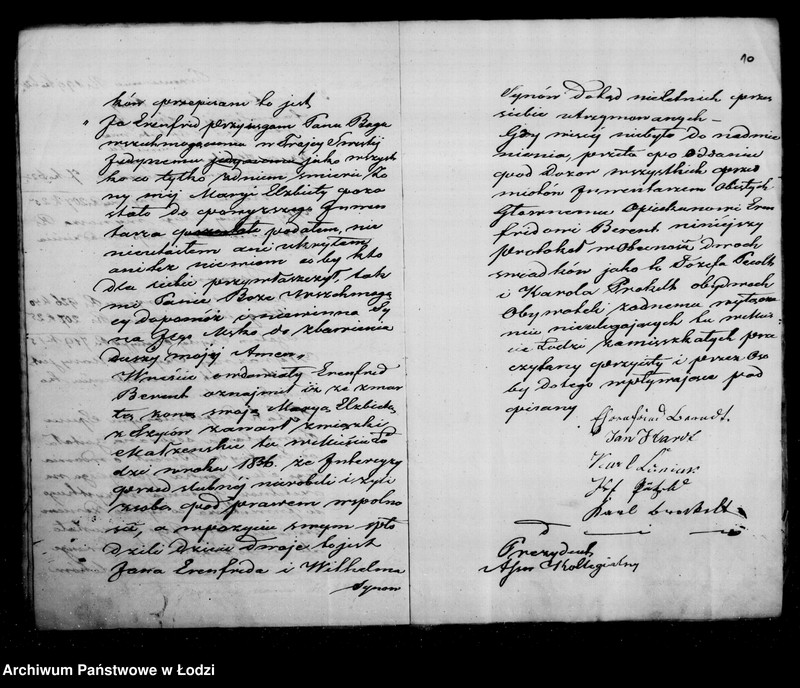 ków przepisani to jest
"Ja Erenfrid przysięgam Panu Bogu
wszechmogącemu w Trojcy Swiętej
Jedynemu jako wszyst
ko co tylko zdniem śmierci Żo
ny mej Maryi Elżbiety pozo
stało do powyższego Inwen
tarza podałem, nic
nieutaiłem ani ukryłem,
ani też niewiem co by kto
dla siebie przywłaszczył, tak
mi Panie Boże wszechmogą
cy dopomóż i niewinna Sy
na Jego Męko do zbawienia
duszy mojej Amen„
Wreście owdowiały Erenfrid
Berent oznajmił iż ze zmar
łą żoną swoją Maryą Elżbietą
z zawarł związki
Małżeńskie tu w mieście Ło
dzi w roku 1836. że Intercyzy
przed slubnej nierobili i żyli
z sobą pod prawem wspolno
ści, a wpożyciu swym spło
dzili dzieci dwoje to jest
Jana Erenfrida i Wilhelma
Synow
10
Synów dotąd nieletnich przez
siebie utrzymywanych –
Gdy więcej niebyło do nadmie
nienia, przeto po oddaniu
pod Dozor wszystkich przed
miotów Inwentarzem Objętych
Głownemu Opiekunowi Eren
fridowi Berent niniejszy
protokół w Obecności dwóch
swiadków jako to Józefa
i Karola obydwoch
Obywateli żadnemu wyłącze
niu nieulegających tu w mie
scie Łodzi zamieszkałych prze
czytany przyięty i przez Oso
by do tego wpływające pod
pisany
Ehrenfried Berendt.
Jan
Karl
Karl
Prezydent
Asesor Kollegialny
Archiwum Państwowe w Łodzi